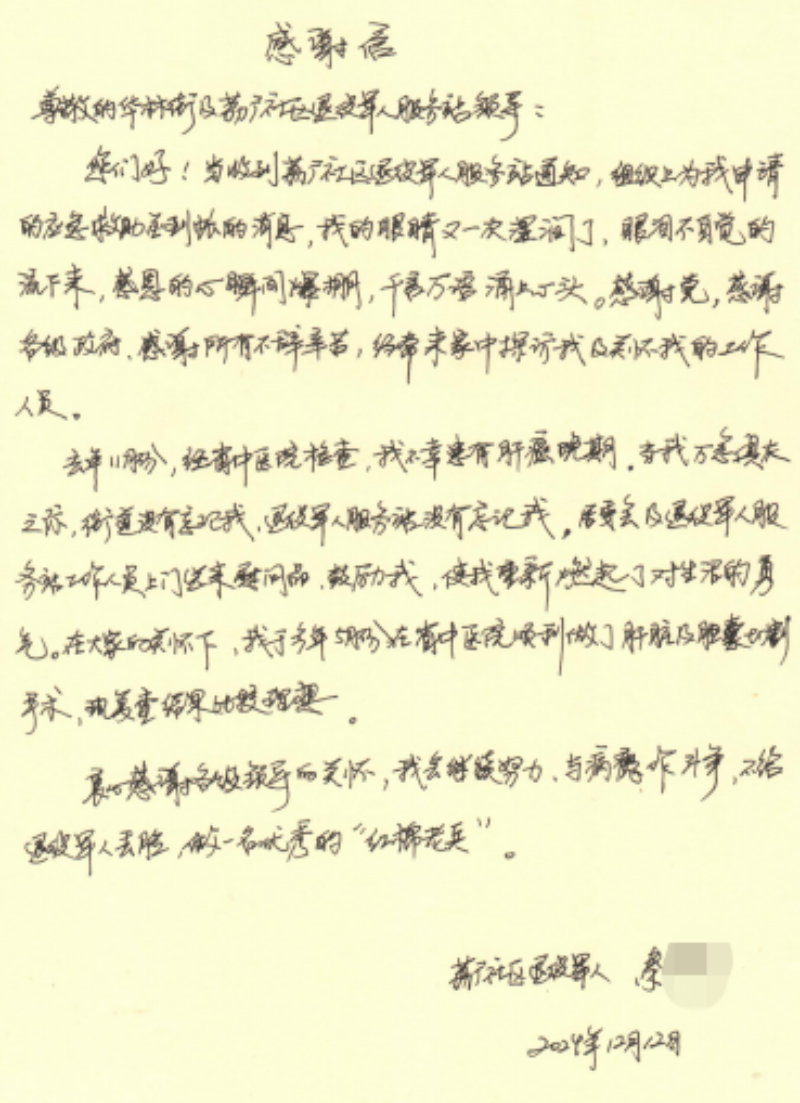 感谢信
尊敬的华林街及荔广社区退役军人服务站领导：
您们好！当收到荔广社区退役军人服务站通知，组织上为我申请
的应急救助金到帐的消息，我的眼睛又一次湿润了，眼泪不自觉的
流下来，感恩的心瞬间爆棚，千言万语涌上心头。感谢党，感谢
各级政府、感谢所有不辞辛苦，经常来家中探访我及关怀我的工作
人员。
去年11月份，经省中医院检查，我不幸患有肝癌晚期。在我万念俱灰
之际，街道没有忘记我，退役军人服务站没有忘记我。居委会及退役军人服
务站工作人员上门送来慰问品、鼓励我，使我重新燃起了对生活的勇
气。在大家的关怀下，我于今年5月份在省中医院顺利做了肝脏及胆囊切割
手术，现复查结果比较理想。
衷心感谢各级领导的关怀，我会继续努力、与病魔作斗争，不给
退役军人丢脸，做一名优秀的“红棉老兵”。
荔广社区退役军人 秦
2024年12月12日